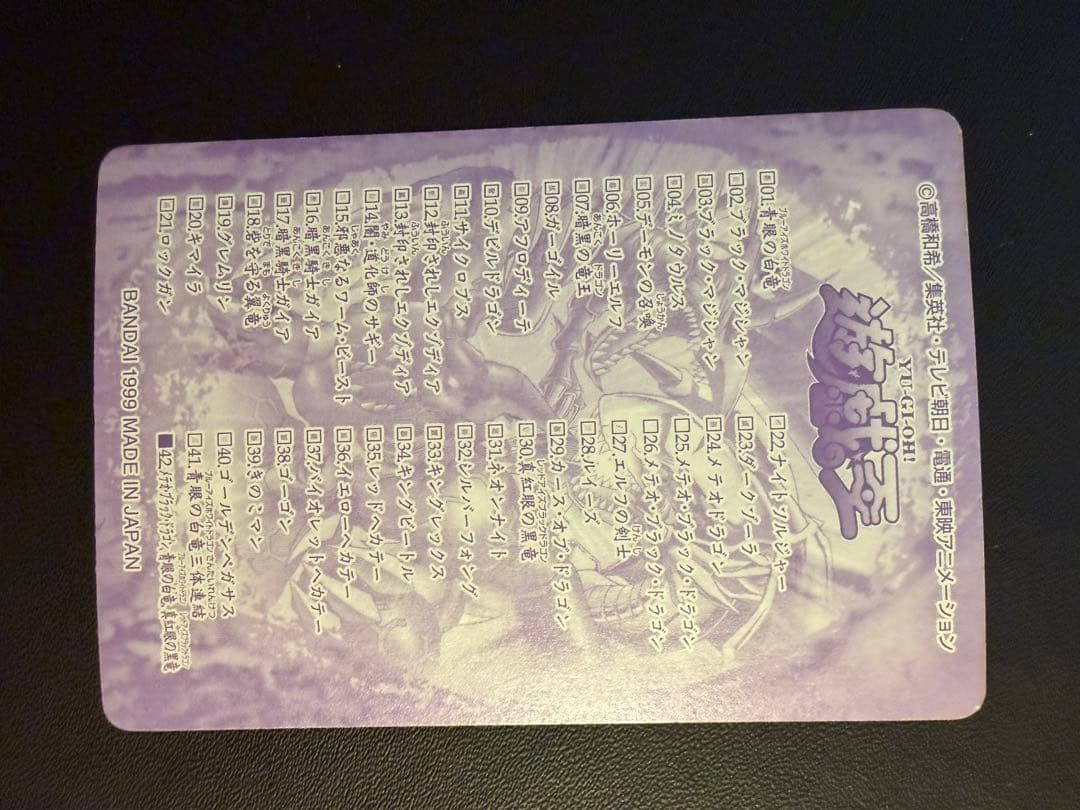 ©高橋和希/集英社・テレビ朝日・電通・東映アニメーション
YU-GI-OH!
遊戯王
□01.青眼の白竜
□02.ブラック・マジシャン
□03.ブラック・マジシャン
□04.ミノタウルス
□05.デーモンの召喚
□06.ホーリーエルフ
□07.暗黒の竜王
□08.ガーゴイル
□09.アフロディーテ
□10.デビルドラゴン
□11.サイクロプス
□12.封印されしエクゾディア
□13.封印されしエクゾディア
□14.闇・道化師のサギー
□15.邪悪なるワーム・ビースト
□16.暗黒騎士ガイア
□17.暗黒騎士ガイア
□18.砦を守る翼竜
□19.グレムリン
□20.キマイラ
□21.ロックガン
□22.ナイトソルジャー
□23.ダークゾーラ
□24.メテオドラゴン
□25.メテオ・ブラック・ドラゴン
□26.メテオ・ブラック・ドラゴン
□27.エルフの剣士
□28.ルイーズ
□29.カース・オブ・ドラゴン
□30.真紅眼の黒竜
□31.ネオンナイト
□32.シルバーフォング
□33.キングレックス
□34.キングビートル
□35.レッドヘカテー
□36.イエローヘカテー
□37.バイオレットヘカテー
□38.ゴーゴン
□39.きのこマン
□40.ゴールデンペガサス
□41.青眼の白竜三体連結
■42.メテオブラックドラゴン、青眼の白竜、真紅眼の黒竜
BANDAI 1999 MADE IN JAPAN